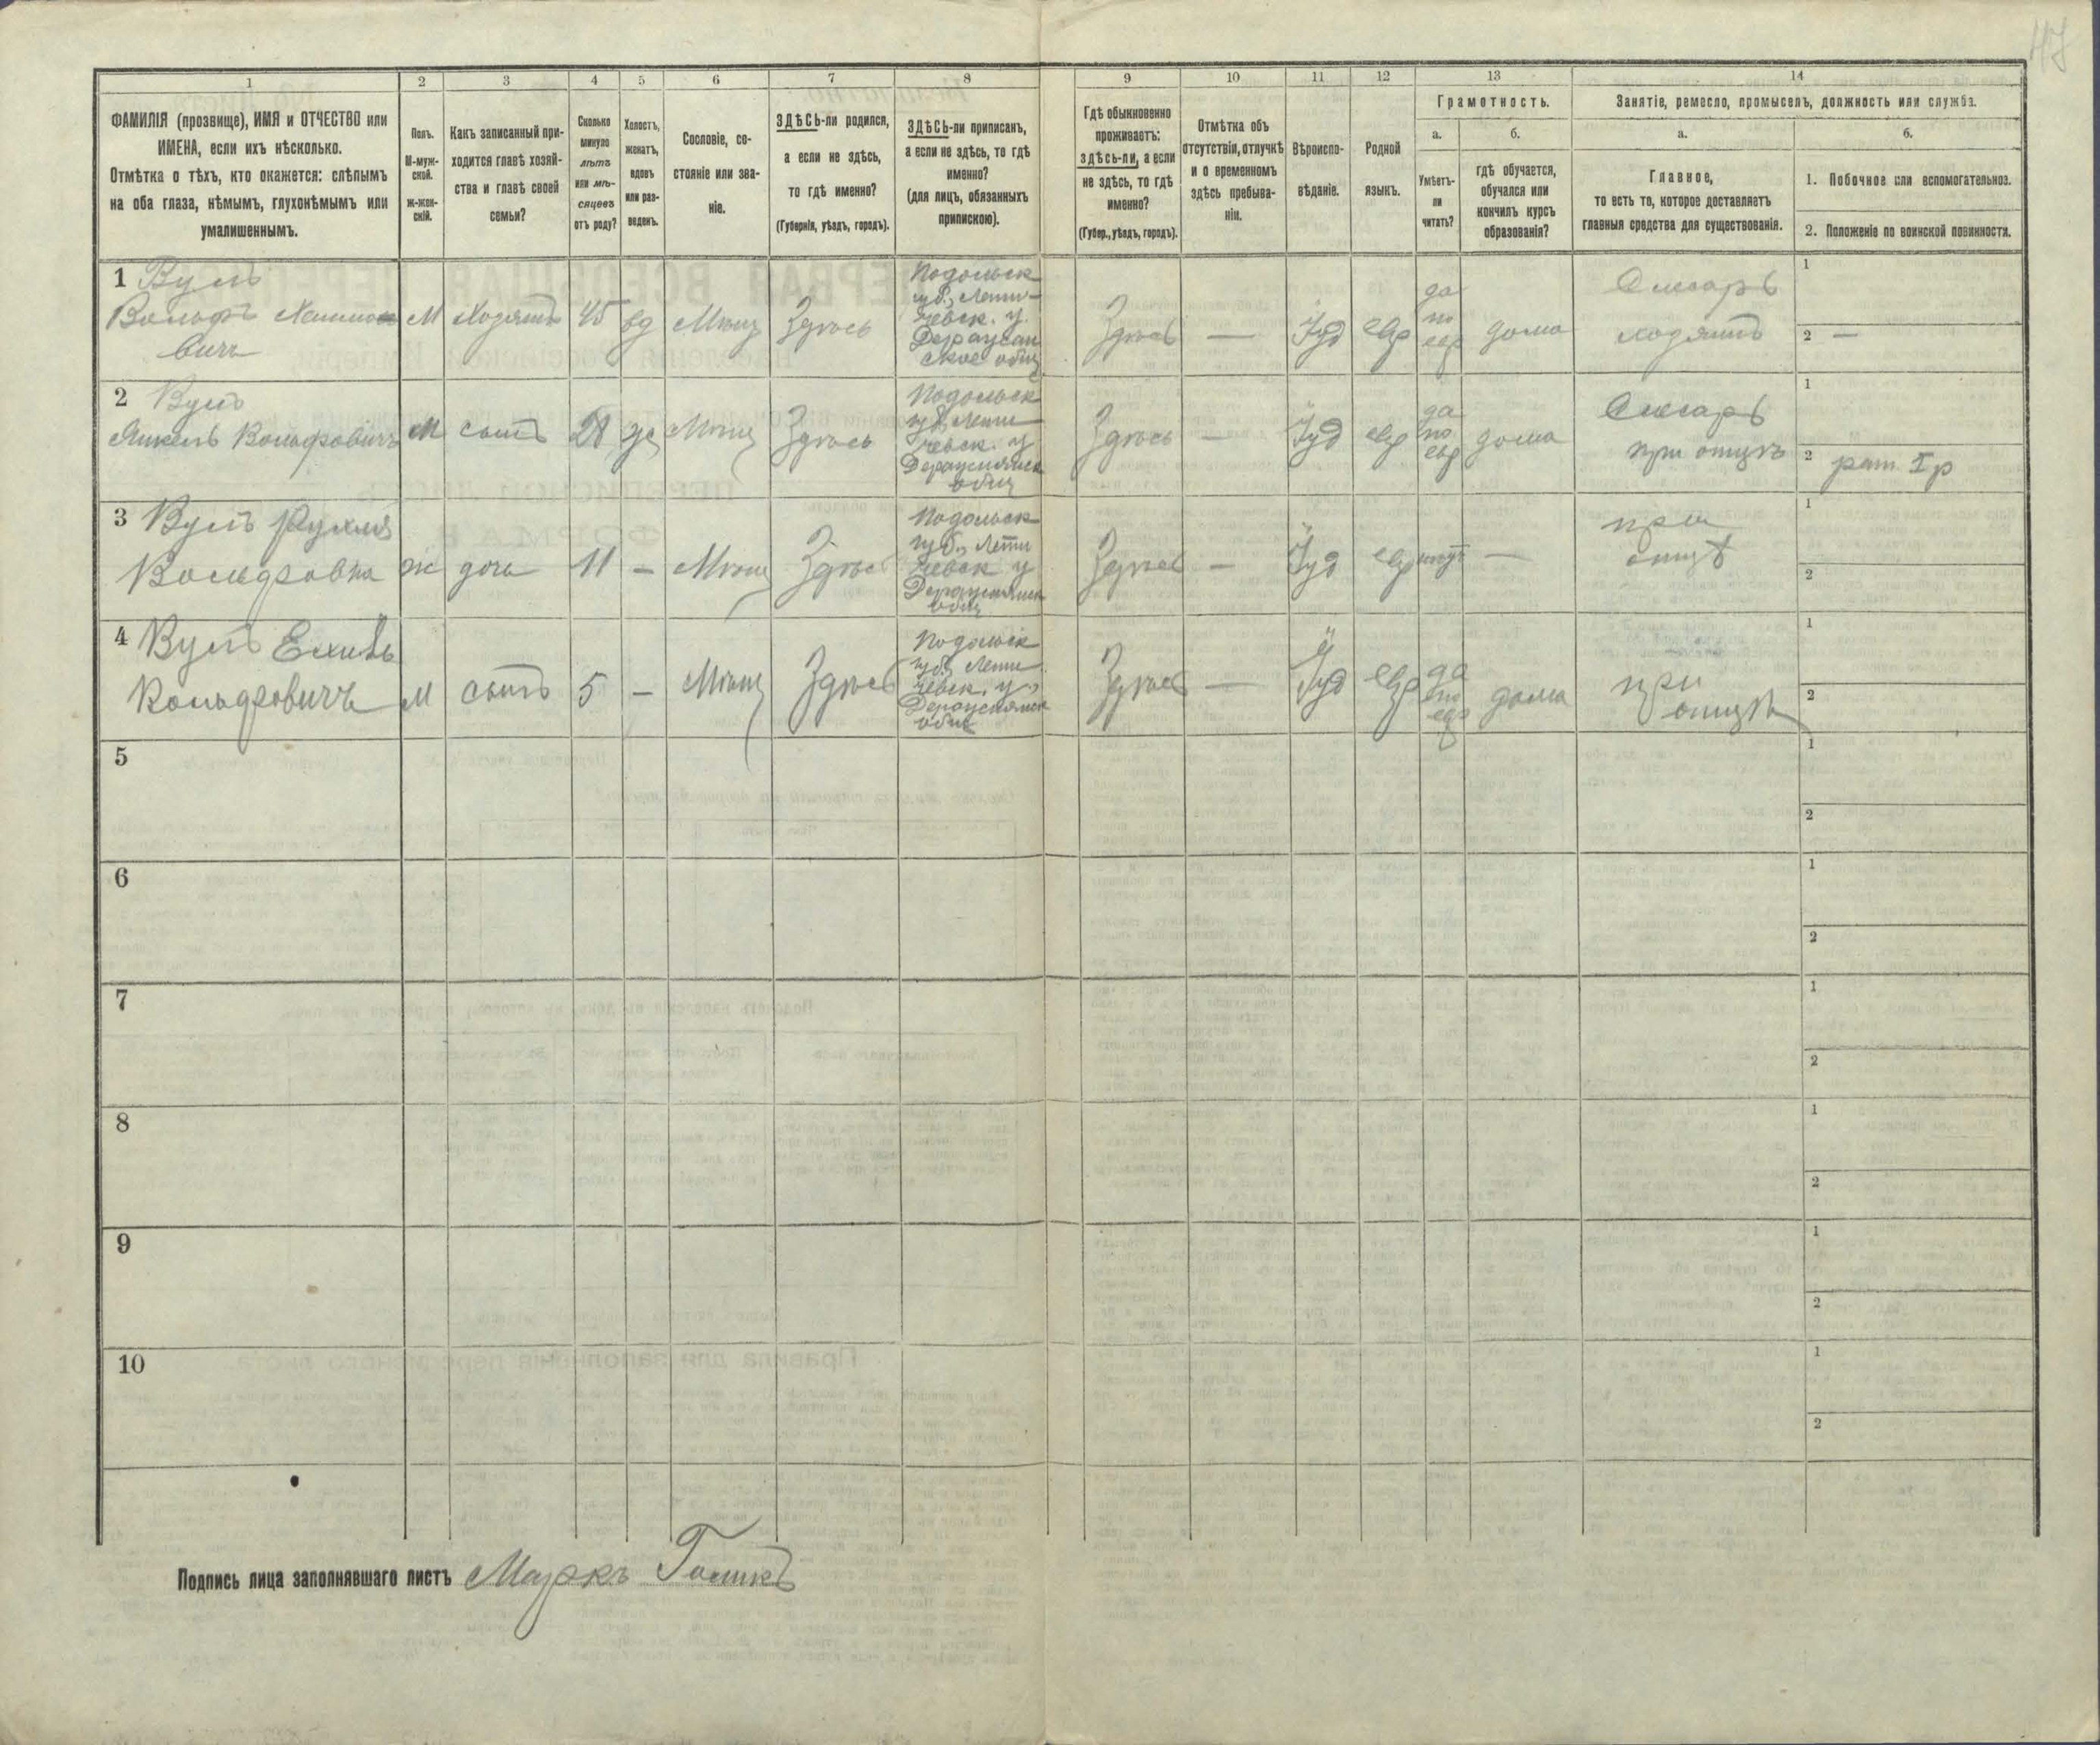 47
1
2
3
4
5
6
7
8
9
10
11
12
13
14
ФАМИЛІЯ (прозвище), ИМЯ и ОТЧЕСТВО или
ИМЕНА, если ихъ нѣсколько.
Отмѣтка о тѣхъ, кто окажется: слѣпымъ
на оба глаза, нѣмымъ, глухонѣмымъ или
умалишеннымъ.
Полъ.
М-муж-
ской.
ж-жен-
скій.
Какъ записанный при-
ходится главѣ хозяй-
ства и главѣ своей
семьи?
Сколько
минуло
лѣтъ
или мѣ-
сяцевъ
отъ роду?
Холостъ,
женатъ,
вдовъ
или раз-
веденъ.
Сословіе, со-
стояніе или зва-
ніе.
ЗДѢСЬ-ли родился,
а если не здѣсь,
то гдѣ именно?
(Губернія, уѣздъ, городъ).
ЗДѢСЬ-ли приписанъ,
а если не здѣсь, то гдѣ
именно?
(для лицъ, обязанныхъ
припискою).
Гдѣ обыкновенно
проживаетъ:
здѣсь-ли, а если
не здѣсь, то гдѣ
именно?
(Губер., уѣздъ, городъ).
Отмѣтка объ
отсутствіи, отлучкѣ
и о временномъ
здѣсь пребыва-
ніи.
Вѣроиспо-
вѣданіе.
Родной
языкъ.
Грамотность.
а.
Умѣетъ-
ли
читать?
б.
гдѣ обучается,
обучался или
кончилъ курсъ
образованія?
Занятіе, ремесло, промыселъ, должность или служба.
а.
Главное,
то есть то, которое доставляетъ
главныя средства для существованія.
б.
1. Побочное или вспомогательное.
2. Положеніе по воинской повинности.
1 Вулъ
Вольфъ
вичъ
М
45
вд
Мѣщ
Здѣсь
Подольск
губ., Лети-
чевск. у.
общ
Здѣсь
—
Іуд
евр
да
по
евр
дома
Слесарь
1
2 —
2 Вулъ
Вольфовичъ
М
сынъ
28
ж
Мѣщ
Здѣсь
Подольск
губ Лети
чевск. у
общ
Здѣсь
—
Іуд
евр
да
по
евр
дома
Слесарь
при отцѣ
1
2 рат I р
3 Вулъ Рухля
Вольфовна
ж
дочь
11
—
Мѣщ
Здѣсь
Подольск
губ., Лети
чевск у
общ
Здѣсь
—
Іуд
евр
—
при
отцѣ
1
2
4 Вулъ
Вольфовичъ
М
сынъ
5
—
Мѣщ
Здѣсь
Подольск
губ, Лети
чевск. у.
общ
Здѣсь
—
Іуд
евр
да
по
евр
дома
при
отцѣ
1
2
5
1
2
6
1
2
7
1
2
8
1
2
9
1
2
10
1
2
Подпись лица заполнявшаго листъ Маркъ